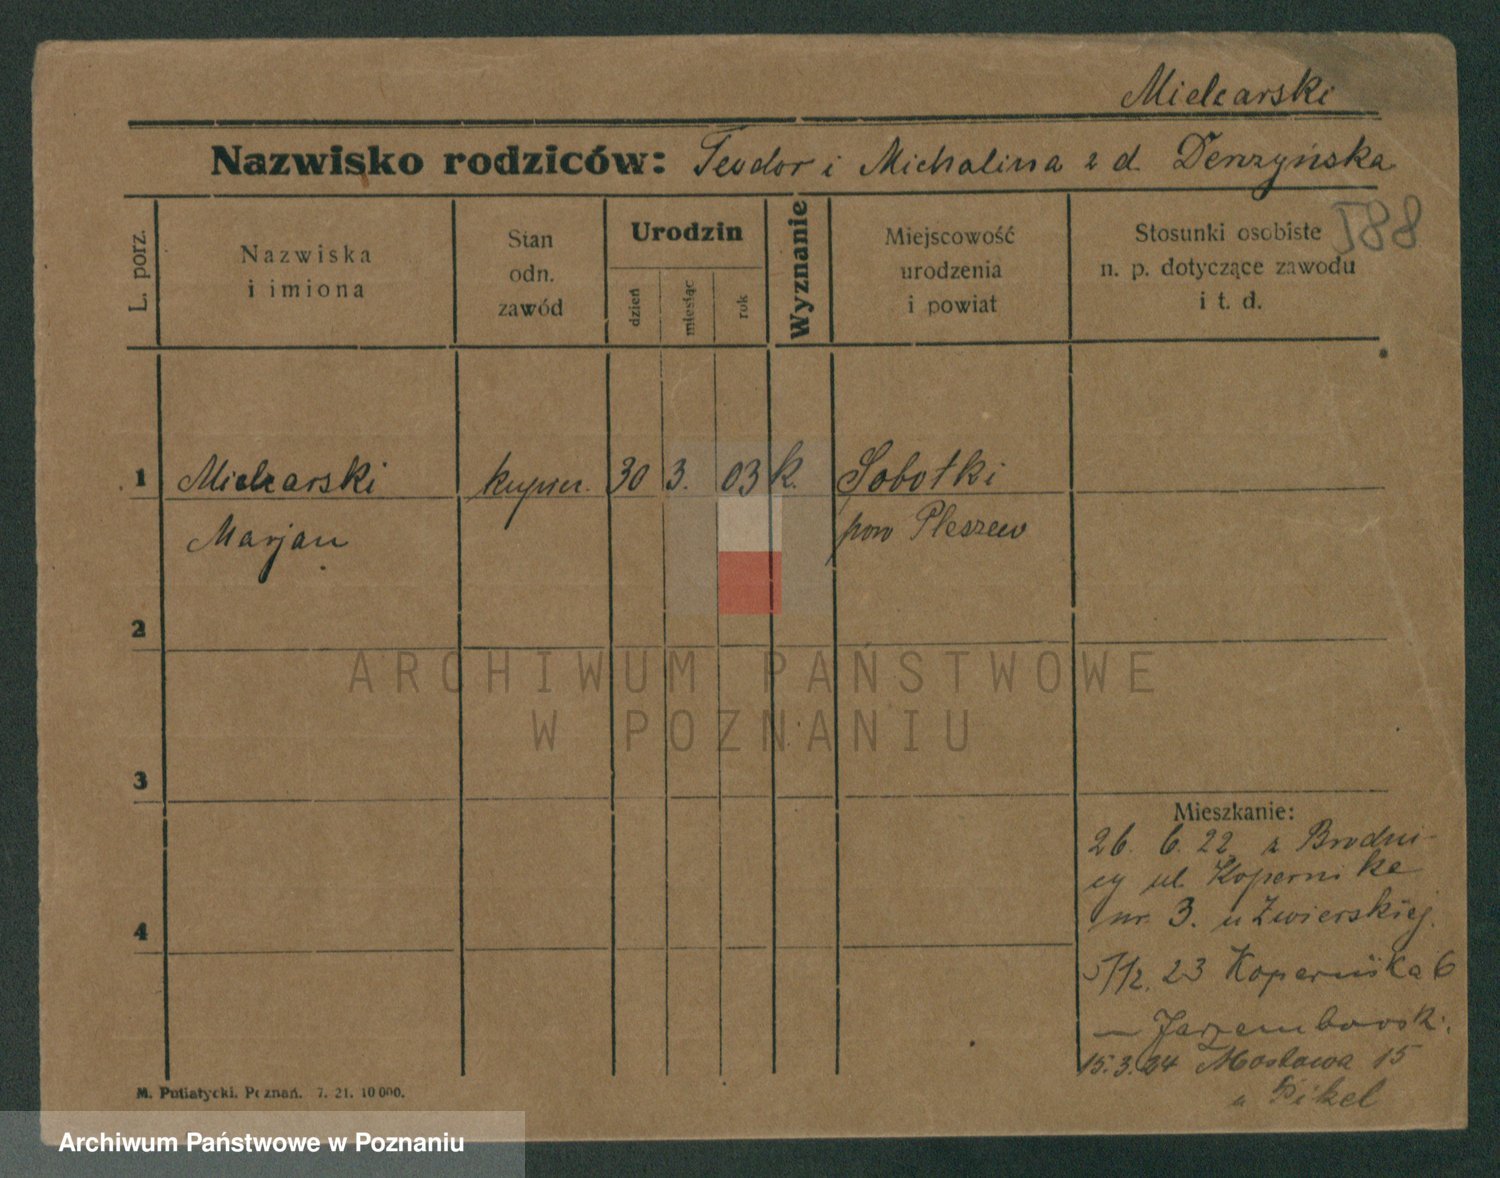 Mielcarski
Nazwisko rodziców: Teodor i Michalina z d. Denzyńska
588
L. porz.
Nazwiska
i imiona
Stan
odn.
zawód
Urodzin
dzień
miesiąc
rok
Wyznanie
Miejscowość
urodzenia
i powiat
Stosunki osobiste
n. p. dotyczące zawodu
i t. d.
1 Mielcarski kupiec. 30 3. 03 k. Sobotki
Marjan pow Pleszew
2
3
4
Mieszkanie:
26. 6. 22 z Brodni-
cy ul. Kopernika
nr. 3. u Zwierskiej.
23 Kopernika 6
— Jarzembowski.
15.3.24 Mostowa 15
u Pikel
M. Putiatycki. Poznań. 7. 21. 10 000.
ARCHIWUM PAŃSTWOWE
W POZNANIU
Archiwum Państwowe w Poznaniu